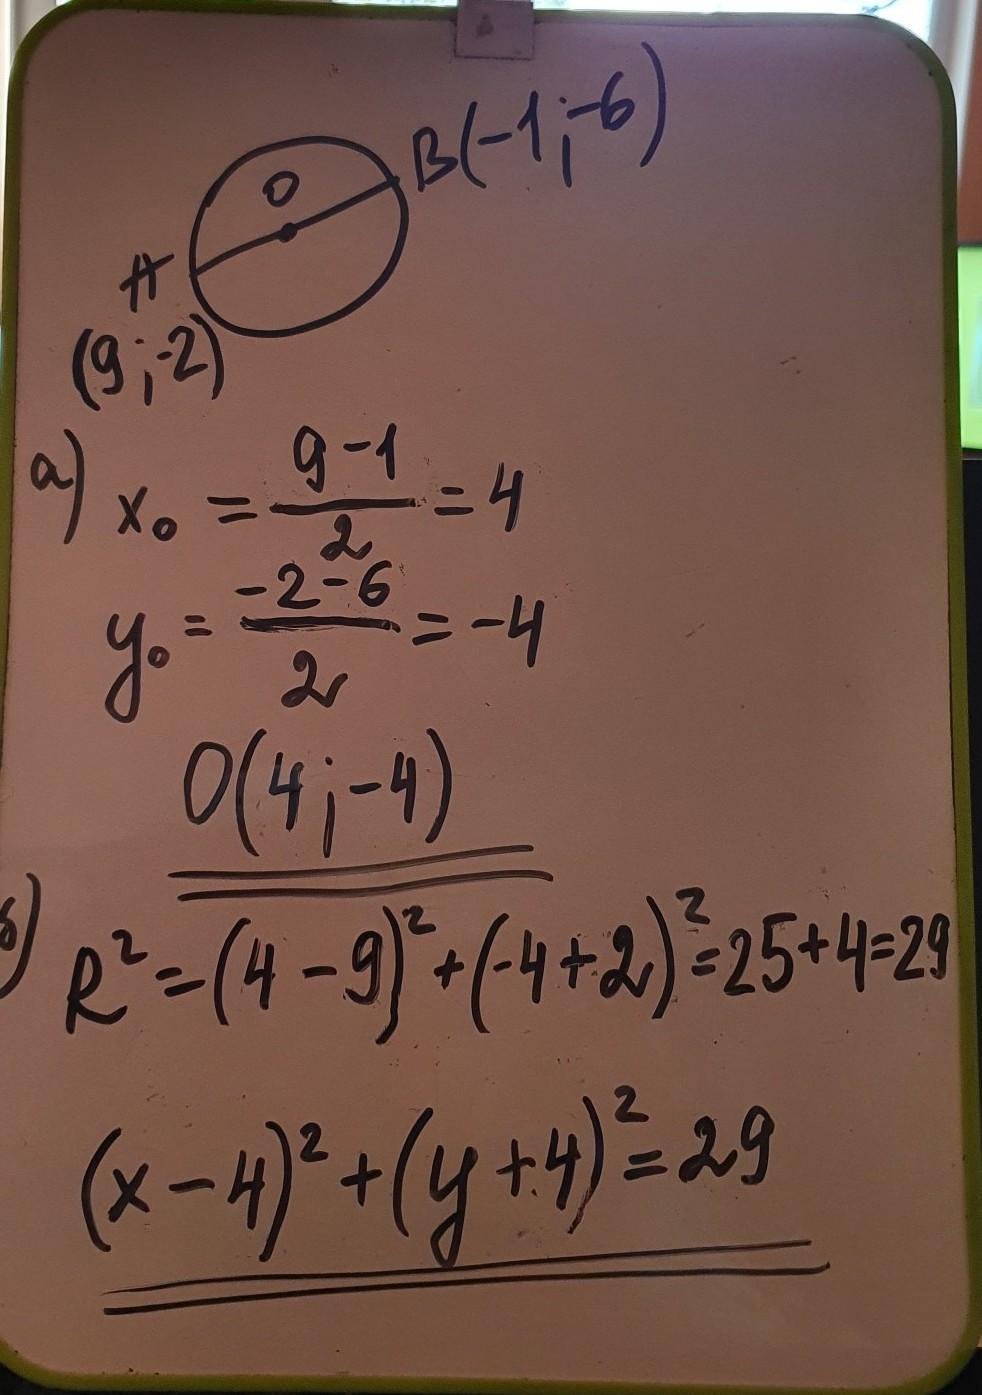 O
B(-1;-6)
A
(9;-2)
а) x₀ = (9-1)/2 = 4
y₀ = (-2-6)/2 = -4
O(4;-4)
б) R² = (4-9)² + (-4+2)² = 25+4=29
(x-4)² + (y+4)² = 29